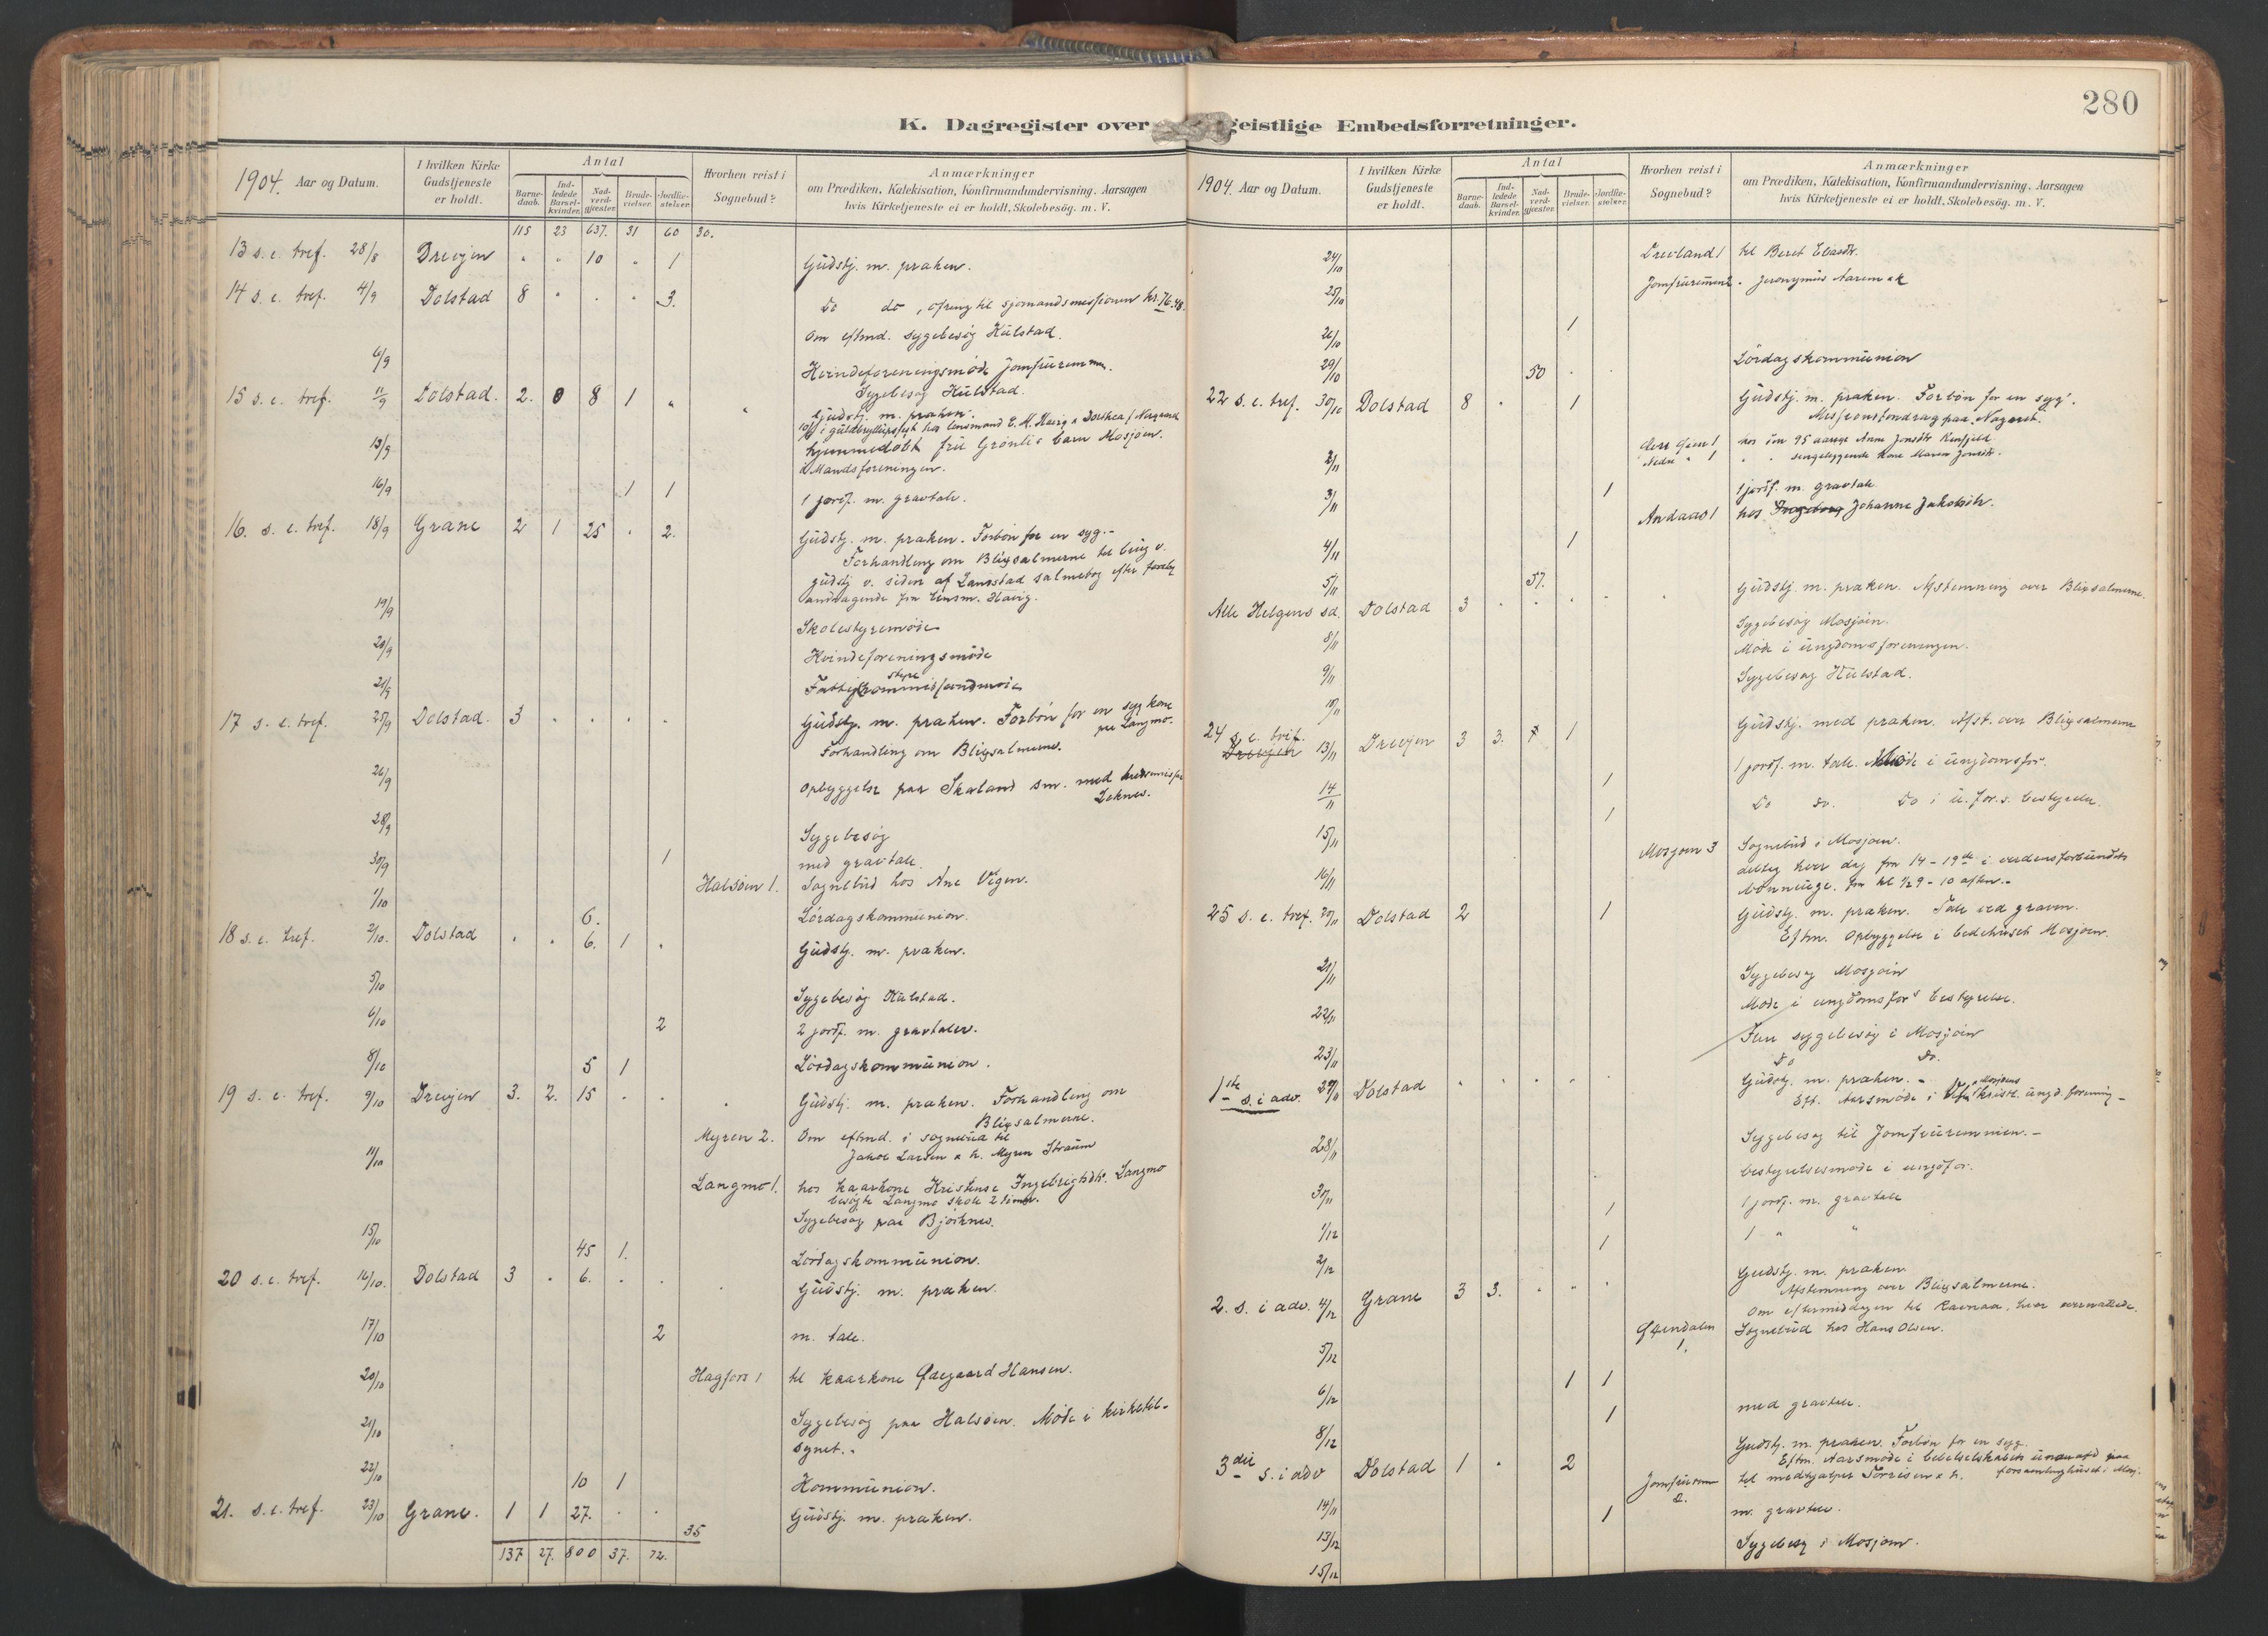 K. Dagregister over geistlige Embedsforretninger.
280
1904. Aar og Datum.
I hvilken Kirke Gudstjeneste er holdt.
Antal
Barnedaab. Indledede Barselkvinder. Nadverdgjæster. Brudevielser. Jordfæstelser.
Hvorhen reist i Sognebud?
Anmærkninger
om Prædiken, Katekisation, Konfirmandundervisning. Aarsagen
hvis Kirketjeneste ei er holdt, Skolebesög. m. V.
115 23 637. 31 60 30.
13 s. e. tref. 28/8 Drevjen " " 10 " 1 Gudstj. m. præken.
14 s. e. tref. 4/9 Dolstad 8 " . " 3. Do do, ofring til sjømandsmissionen kr. 76.48.
Om eftmd. sygebesøg Kulstad.
6/9 Kvindeforeningsmøde Jomfruremmen.
Sygebesøg Kulstad.
15 s. e. tref. 11/9 Dolstad. 2. 0 8 1 " " Gudstj. m. præken.
13/9 hjemmedøbt fru Grønlis barn Mosjøen.
Mandsforeningen.
16/9 1 1 1 jordf. m. gravtale.
16. s. e. tref. 18/9 Grane 2 1 25 . 2. Gudstj. m. præken. Forbøn for en syg.
Forhandling om Blixsalmerne til brug v.
gudstj. v. siden af Landstad salmebog efter
andragende fra lensm. Havig.
19/9 Skolestyremøde
20/9 Kvindeforeningsmøde
21/9 Fattigstyre
17 s. e. tref. 25/9 Dolstad. 3 . . . . Gudstj. m. præken. Forbøn for en syg kone
paa Langmo.
Forhandling om Blixsalmerne.
26/9 Opbyggelse paa Skaland sm. med
Leknes.
28/9 Sygebesøg
30/9 1 med gravtale.
Halsøen 1. Sognebud hos Ane Vigen.
1/10 6. Lørdagskommunion.
18 s. e. tref. 2/10. Dolstad " " 6. 1 . Gudstj. m. præken.
5/10 Sygebesøg Kulstad.
6/10 2 2 jordf. m. gravtaler.
8/10 5 1 Lørdagskommunion.
19 s. e. tref. 9/10 Drevjen 3. 2. 15 . . . Gudstj. m. præken. Forhandling om
Blixsalmerne.
Myren 2. Om eftmd. i sognebud til
Jakob Larsen & h. Myren Straum
11/10 Langmo 1. hos kaarkone Kristense Ingebrigtsdtr. Langmo
besøgte Langmo skole 2 timer.
Sygebesøg paa Bjørknes.
15/10 45 1. Lørdagskommunion.
20 s. e. tref. 16/10. Dolstad 3 . 6. . . . Gudstj. m. præken.
17/10 2 m. tale.
20/10 Hagfors 1 til kaarkone Ødegaard Hansen.
21/10 Sygebesøg paa Halsøen. Møde i kirketil-
synet.
22/10 10 1 Kommunion.
21. s. e. tref. 23/10 Grane. 1 1 27. . . Gudstj. m. præken.
35
137 27. 800 37. 72.
1904. Aar og Datum.
I hvilken Kirke Gudstjeneste er holdt.
Antal
Barnedaab. Indledede Barselkvinder. Nadverdgjæster. Brudevielser. Jordfæstelser.
Hvorhen reist i Sognebud?
Anmærkninger
om Prædiken, Katekisation, Konfirmandundervisning. Aarsagen
hvis Kirketjeneste ei er holdt, Skolebesög. m. V.
24/10 Drevland 1 til Beret Eliasdtr.
25/10 Jomfruremmen 2. Jeronymus Aarem & k
26/10 1
29/10 50 . . Lørdagskommunion
22 s. e. tref. 30/10 Dolstad 8 . 1 Gudstj. m. præken. Forbøn for en syg.
Missionsforedrag paa Nazaret.
1 hos den 95 aarige Anne Jonsdtr.
Nedre " 1 " " sengeliggende kone Maren Jonsdtr.
2/11
3/11 1 1 jordf. m. gravtale
Andaas 1 hos Johanne Jakobsdtr.
4/11 1
5/11 57.
Alle Helgens sd. Dolstad 3 . . . . . Gudstj. m. præken. Afstemning over Blixsalmerne.
Sygebesøg Mosjøen.
8/11 Møde i ungdomsforeningen.
9/11 Sygebesøg Kulstad.
10/11
24 s. e. tref. 13/11 Drevjen 3 3. 1 Gudstj. med præken. Afst. over Blixsalmerne
14/11 1 1 jordf. m. tale. Møde i ungdomsfor.
1 Do do. Do i u. for.s. bestyrelse.
15/11 Mosjøen 3 Sognebud i Mosjøen.
16/11 deltog hver dag fra 14-19de i verdensforbundets
bønneuge. fra kl ½9-10 aften.
25 s. e. tref. 20/11 Dolstad 2 1 Gudstj. m. præken. Tale ved graven.
Eftm. Opbyggelse i bedehuset Mosjøen.
21/11 Sygebesøg Mosjøen
22/11 Møde i ungdomsfors bestyrelse.
Flere sygebesøg i Mosjøen
23/11 Do Do.
1ste s. i adv. 27/11 Dolstad . . . . . Gudstj. m. præken.
Eft. Aarsmøde i Mosjøens kristl. ungd. forening
28/11 Sygebesøg til Jomfruremmen.
bestyrelsesmøde i ungdfor.
30/11 1 1 jordf. m. gravtale
1/12 1 1 " "
2/12
2. s. i adv. 4/12 Grane 3 3. . . . Gudstj. m. præken
Afstemning over Blixsalmerne.
Om eftermiddagen til Ravnaa, hvor overnattede.
5/12 Øxendalen 1, Sognebud hos Hans Olsen.
6/12 1 1
8/12 1 med gravtale.
3die s. i adv Dolstad 1 . 2 Gudstj. m. præken. Forbøn for en syg.
Eftm. Aarsmøde i bibelselskabets
forsamlingshuset i Mosj.
2. til medhjælper Torrisen & h.
14/11 1 m. gravtale.
13/12 Sygebesøg i Mosjøen.
15/12